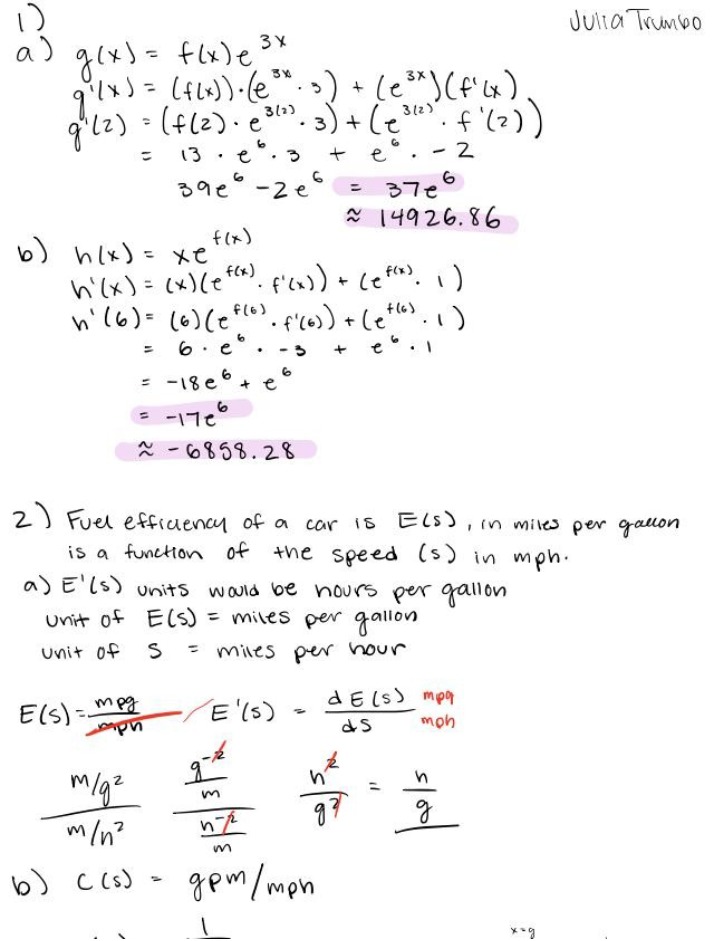 Julia Trumbo
1)
a) g(x) = f(x)e^{3x}
g'(x) = (f(x))·(e^{3x} · 3) + (e^{3x})(f'(x)
g'(2) = (f(2) · e^{3(2)} · 3) + (e^{3(2)} · f'(2))
= 13 · e^6 · 3 + e^6 · -2
39e^6 - 2e^6 = 37e^6
≈ 14926.86
b) h(x) = xe^{f(x)}
h'(x) = (x)(e^{f(x)} · f'(x)) + (e^{f(x)} · 1)
h'(6) = (6)(e^{f(6)} · f'(6)) + (e^{f(6)} · 1)
= 6 · e^6 · -3 + e^6 · 1
= -18e^6 + e^6
= -17e^6
≈ -6858.28
2) Fuel efficiency of a car is E(s), in miles per gallon
is a function of the speed (s) in mph.
a) E'(s) units would be hours per gallon
unit of E(s) = miles per gallon
unit of s = miles per hour
E(s) = mpg/mph E'(s) = dE(s)/ds mpg mph
m/g^2 / m/h^2 g^{-2}/m / h^{-2}/m h^2/g^2 = h/g
b) C(s) = gpm/mph
1
x=g